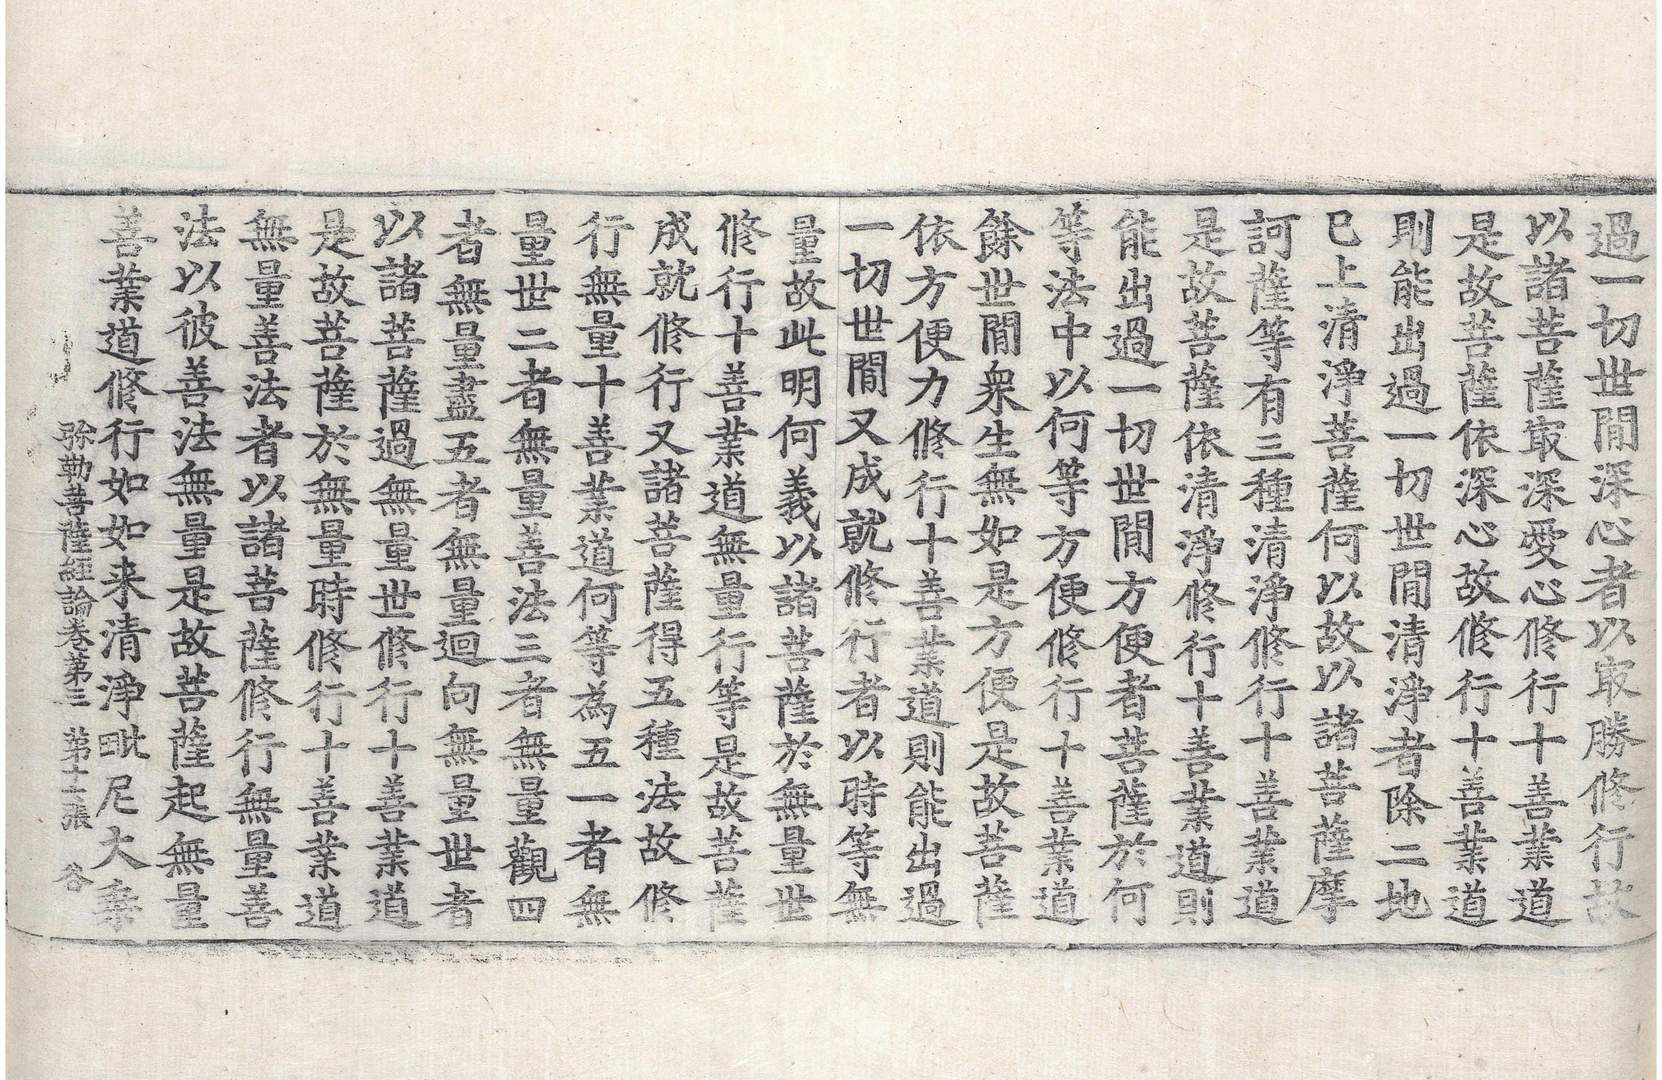 過一切世間深心者以取勝修行故
以諸菩薩取深愛心修行十善業道
是故菩薩依深心故修行十善業道
則能出過一切世間清淨者除二地
已上清淨菩薩何以故以諸菩薩摩
訶薩等有三種清淨修行十善業道
是故菩薩依清淨修行十善業道則
能出過一切世間方便者菩薩於何
等法中以何等方便修行十善業道
餘世間衆生無如是方便是故菩薩
依方便力修行十善業道則能出過
一切世間又成就修行者以時等無
量故此明何義以諸菩薩於無量世
修行十善業道無量行等是故菩薩
成就修行又諸菩薩得五種法故修
行無量十善業道何等為五一者無
量世二者無量善法三者無量觀四
者無量盡五者無量迴向無量世者
以諸菩薩過無量世修行十善業道
是故菩薩於無量時修行十善業道
無量善法者以諸菩薩修行無量善
法以彼善法無量是故菩薩起無量
善業道修行如如来清淨毗尼大乗
弥勒菩薩經論卷第三 第十二張 谷